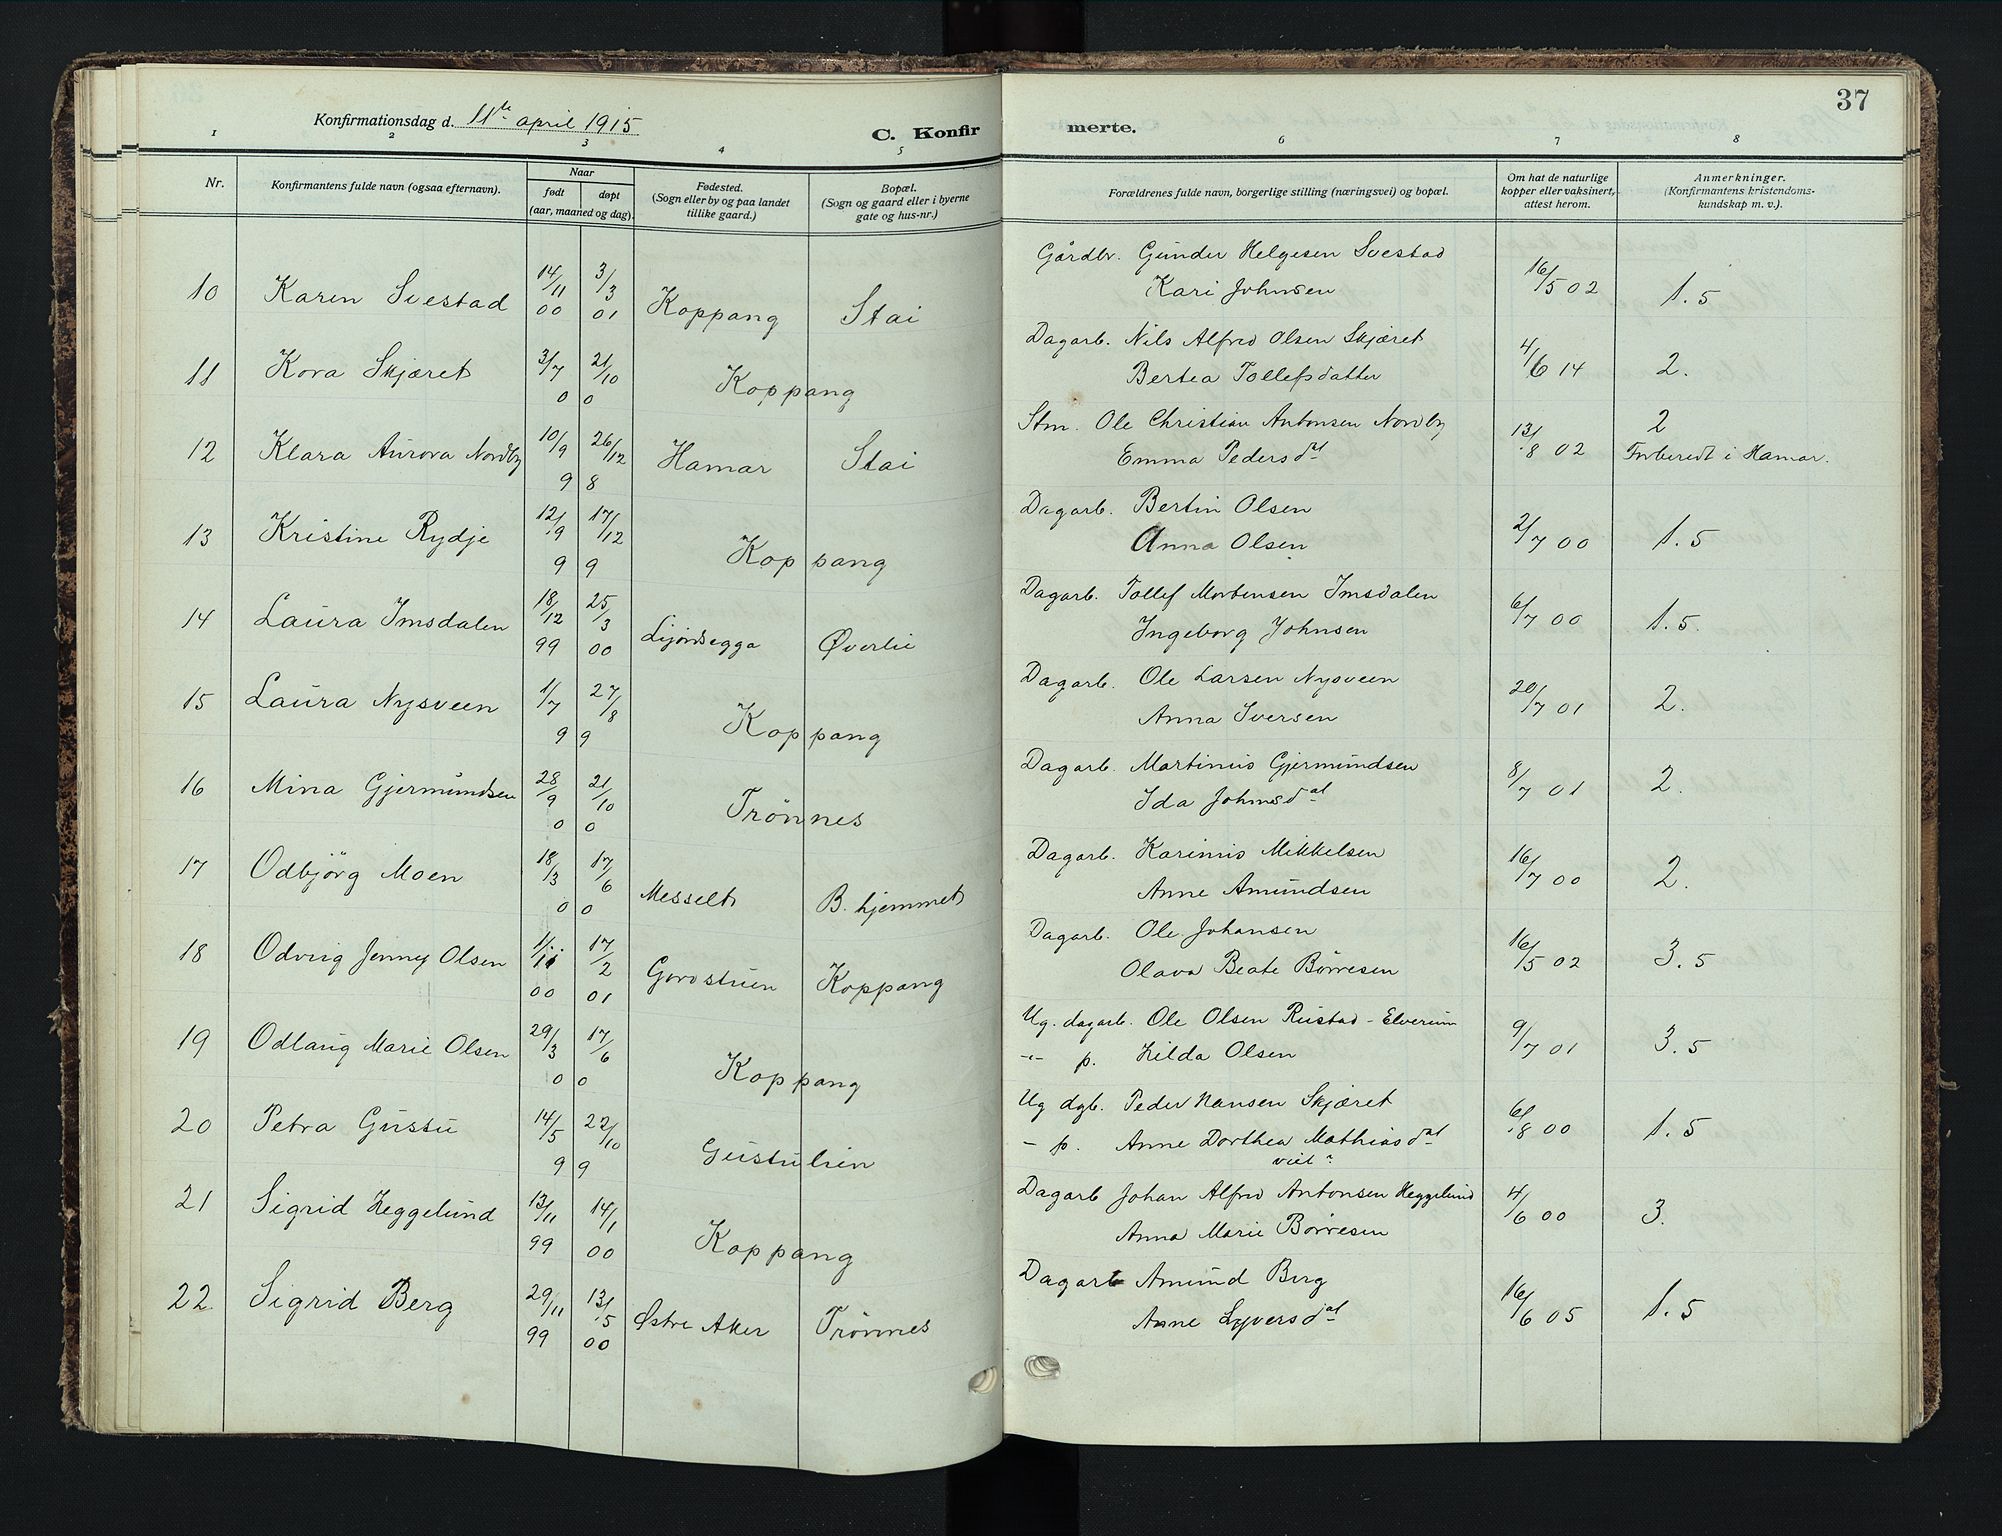 37
Konfirmationsdag d. 11te april 1915
C. Konfirmerte.
1 2 3 4 5 6 7 8
Nr.
Konfirmantens fulde navn (ogsaa efternavn).
Naar
født døpt
(aar, maaned og dag).
Fødested.
(Sogn eller by og paa landet
tillike gaard.)
Bopæl.
(Sogn og gaard eller i byerne
gate og hus-nr.)
Forældrenes fulde navn, borgerlige stilling (næringsvei) og bopæl.
Om hat de naturlige
kopper eller vaksinert,
attest herom.
Anmerkninger.
(Konfirmantens kristendoms-
kundskap m. v.).
10 Karen Svestad 14/11 00 3/3 01 Koppang Stai Gårdbr. Gunder Helgesen Svestad 16/5 02 1.5
Kari Johnsen
11 Kora Skjæret 3/7 00 21/10 Koppang Dagarb. Nils Alfred Olsen Skjæret 4/6 14 2.
Bertea Tollefsdatter
12 Klara Aurora Nordby 10/9 98 26/12 Hamar Stai Stm. Ole Christian Antonsen Nordby 13/8 02 2
Emma Pedersdat Forberedt i Hamar.
13 Kristine Rydje 12/9 99 17/12 Koppang Dagarb. Bertin Olsen 2/7 00 1.5
Anna Olsen
14 Laura Imsdalen 18/12 99 25/3 00 Øverlie Dagarb. Tollef Mortensen Imsdalen 6/7 00 1.5.
Ingeborg Johnsen
15 Laura Nysveen 1/7 99 27/8 Koppang Dagarb. Ole Larsen Nysveen 20/7 01 2.
Anna Iversen
16 Mina Gjermundsen 28/9 00 21/10 Trønnes Dagarb. Martinus Gjermundsen 8/7 01 2.
Ida Johnsdat
17 Odbjörg Moen 18/3 00 17/6 Messelt B. hjemmet Dagarb. Karinus Mikkelsen 16/7 00 2.
Anne Amundsen
18 Odvig Jenny Olsen 1/11 00 17/2 01 Gordstuen Koppang Dagarb. Ole Johansen 16/5 02 3.5
Olava Beate Børresen
19 Odlaug Marie Olsen 29/3 00 17/6 Koppang Ug. dagarb. Ole Olsen Rustad - Elverum 9/7 01 3.5
-"- p. Hilda Olsen
20 Petra Gustu 14/5 99 22/10 Gustulien Ug dgb. Peder Hansen Skjæret 6/8 00 1.5
- p. Anne Dorthea Mathiasdat
21 Sigrid Heggelund 13/11 99 14/1 00 Koppang Dagarb Johan Alfred Antonsen Heggelund 4/6 00 3.
Anna Marie Børresen
22. Sigrid Berg 29/11 99 13/5 00 Østre Aker Trønnes Dagarb Amund Berg 16/6 05 1.5
Anne Syversdat